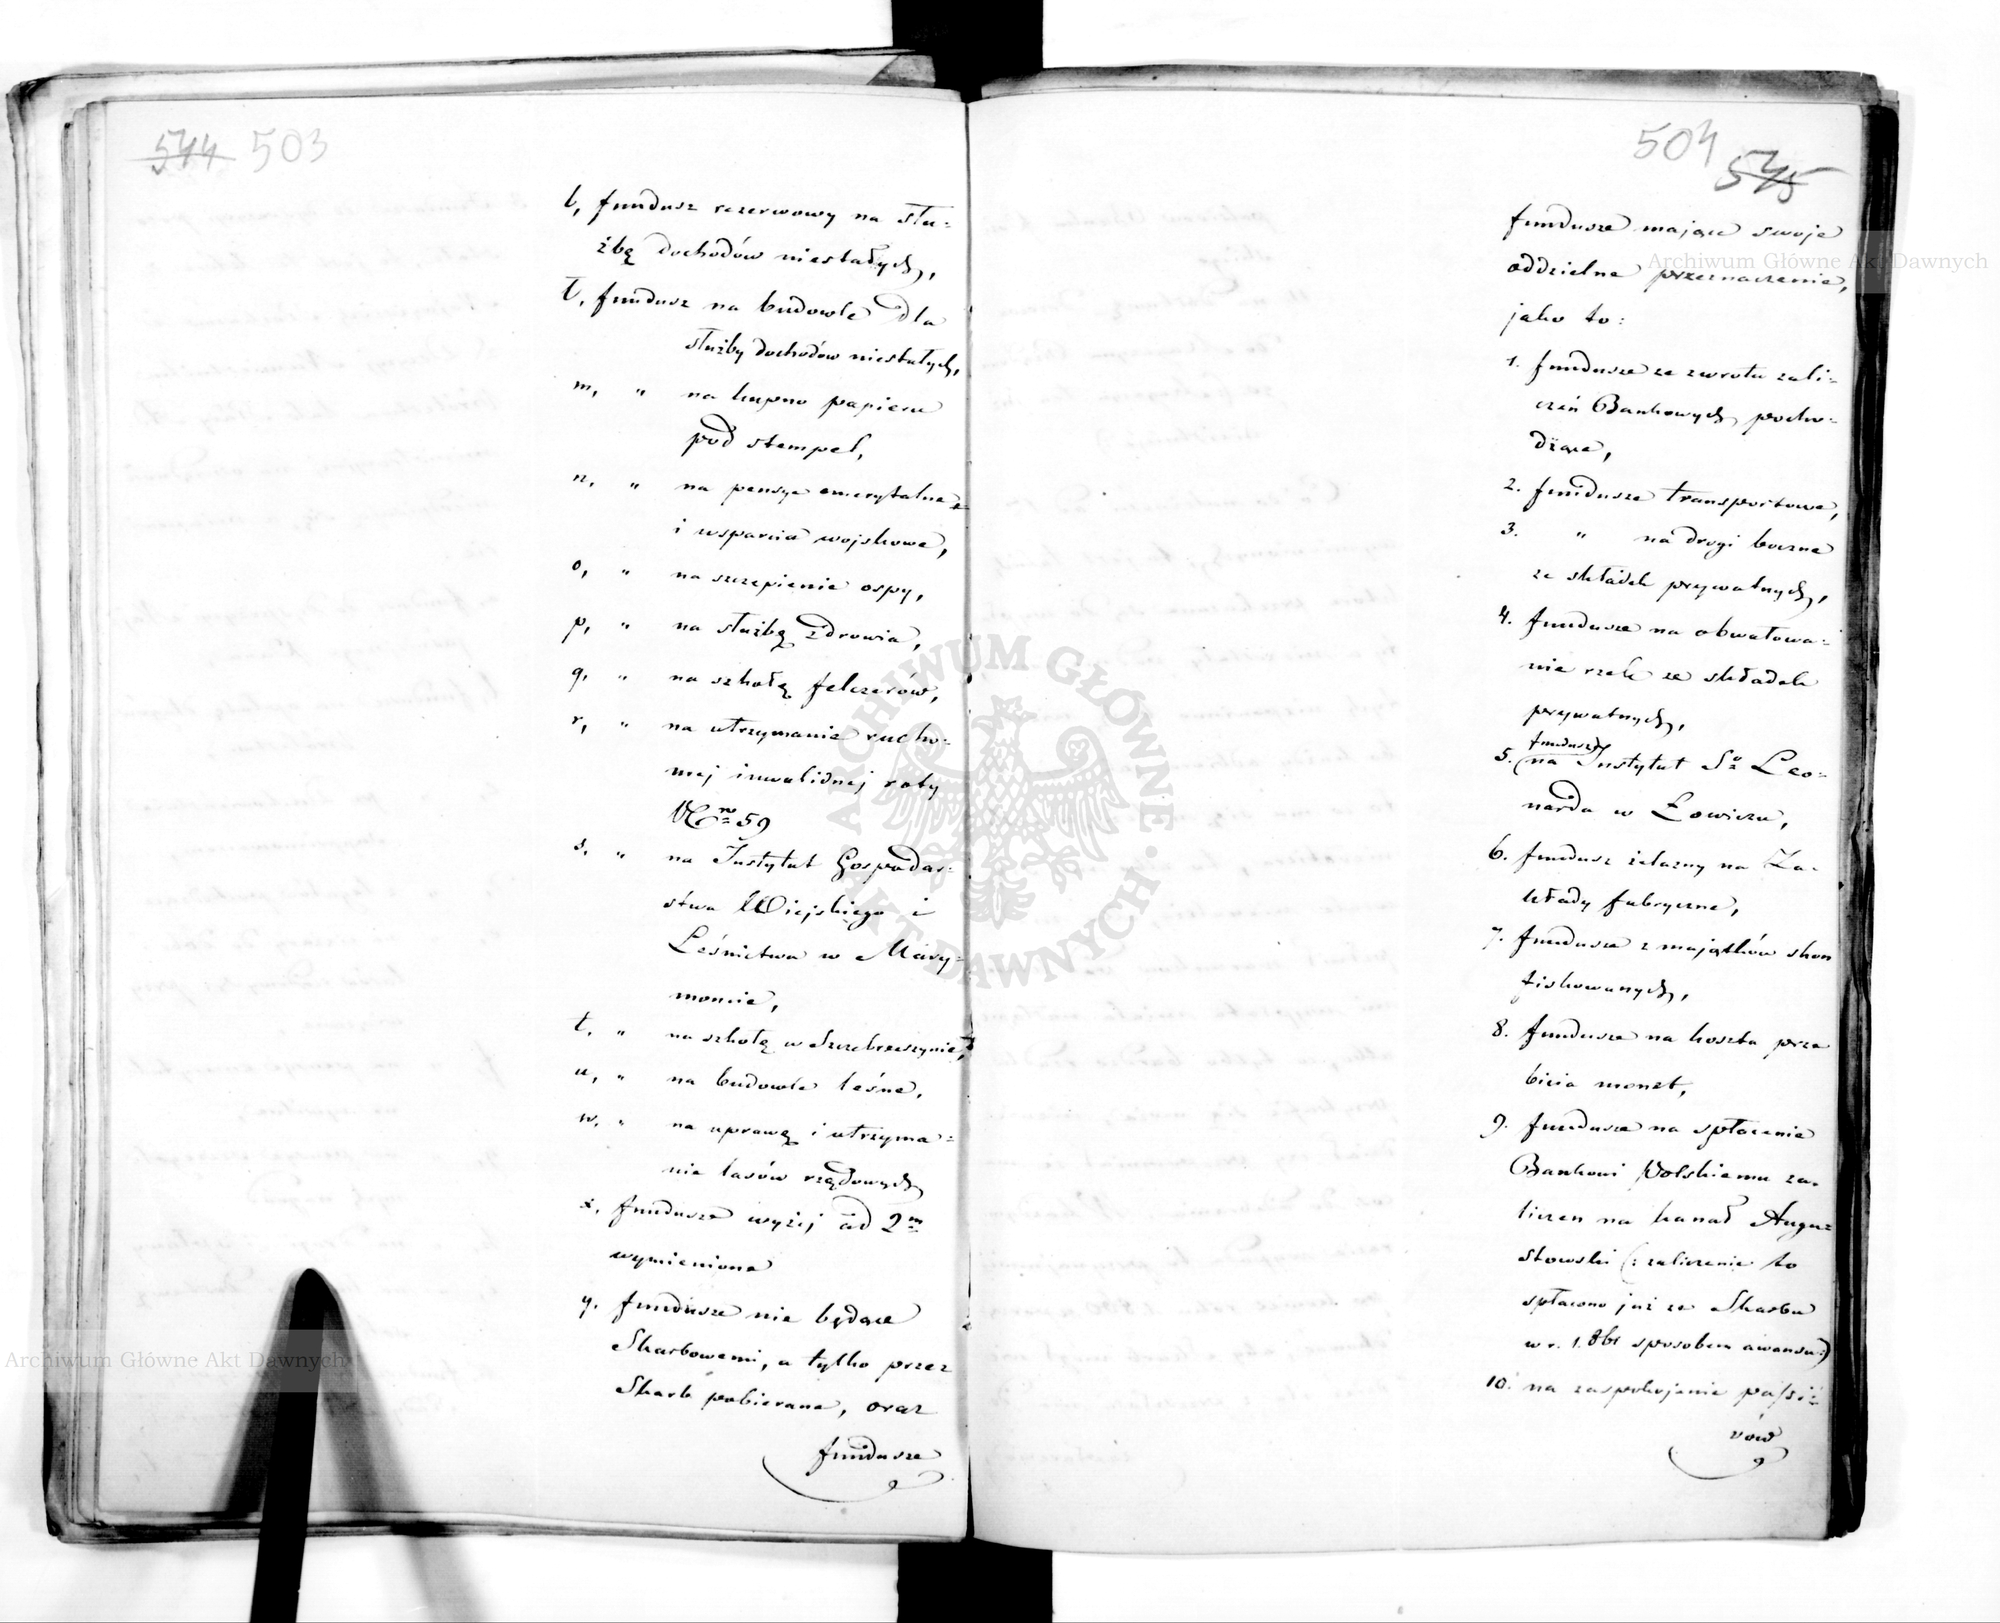 544 503
l, fundusz rezerwowy na słu=
żbę dochodów niestałych,
ł, fundusz na budowle dla
służby dochodów niestałych,
m, " na kupno papieru
pod stempel,
n, " na pensye emerytalne
i wsparcia wojskowe,
o, " na szczepienie ospy,
p, " na służbę zdrowia,
q, " na szkołę felczerów,
r, " na utrzymanie rucho=
mej inwalidnej roty
No 59
s, " na Instytut Gospodar=
stwa Wiejskiego i
Leśnictwa w Mary=
moncie,
t, " na szkołę w Szczebrzeszynie,
u, " na budowle leśne,
w, " na uprawę i utrzyma=
nie lasów rządowych
x, fundusze wyżej ad 2m
wymienione
y, fundusze nie będące
Skarbowemi, a tylko przez
Skarb pobierane, oraz
fundusze
504 545
fundusze mające swoje
oddzielne przeznaczenie,
jako to:
1. fundusze ze zwrotu zali=
czeń Bankowych pocho=
dzące,
2. fundusze transportowe,
3. " na drogi boczne
ze składek prywatnych,
4. fundusze na obwałowa=
nie rzek ze składek
prywatnych,
fundusz
5. na Instytut So Leo=
narda w Łowiczu,
6. fundusz żelazny na Za=
kłady fabryczne,
7. fundusze z majątków skon
fiskowanych,
8. fundusze na koszta prze
bicia monet,
9. fundusze na spłacenie
Bankowi Polskiemu za=
liczen na kanał Augu=
stowski (: zaliczenie to
spłacono już ze Skarbu
w r. 1861 sposobem awansu:)
10. na zaspokojenie passi=
vów
ARCHIWUM GŁÓWNE AKT DAWNYCH
Archiwum Główne Akt Dawnych
Archiwum Główne Akt Dawnych